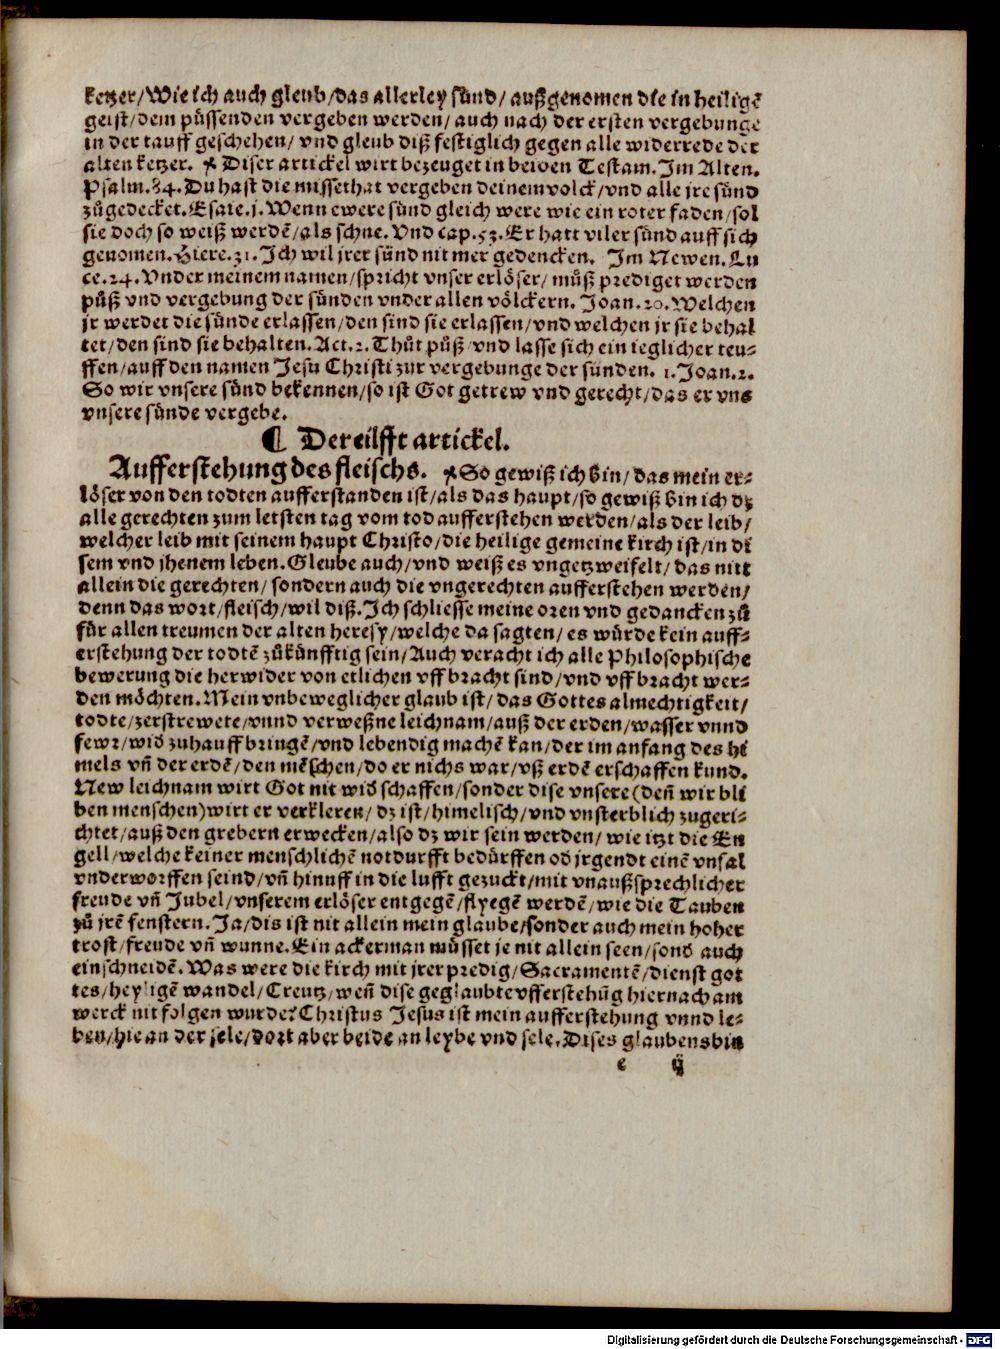 ketzer/Wie ich auch gleub/das allerley sünd/ außgenomen die in heiligē
geist/dem püssenden vergeben werden/ auch nach der ersten vergebunge
in der tauff geschehen/ vnd gleub diß festiglich gegen alle widerrede der
alten ketzer. ⁊ Diser artickel wirt bezeuget in beiden Testam. Im Alten.
Psalm.84. Du hast die missethat vergeben deinem volck/vnd alle jre sünd
zůgedecket. Esaie.j. Wenn ewere sünd gleich were wie ein roter faden/sol
sie doch so weiß werdē/als schne. Vnd cap.53. Er hatt viler sünd auff sich
genomen. Hiere.31. Ich wil jrer sünd nit mer gedencken. Im Newen. Lu
ce.24. Vnder meinem namen/spricht vnser erlöser/ můß prediget werden
půß vnd vergebung der sünden vnder allen völckern. Joan.20. Welchen
jr werdet die sünde erlassen/den sind sie erlassen/vnd welchen jr sie behal
tet/den sind sie behalten. Act.2. Thůt půß vnd lasse sich ein ieglicher teu-
ffen/auff den namen Jesu Christi zur vergebunge der sünden. 1. Joan.2.
So wir vnsere sünd bekennen/so ist Got getrew vnd gerecht/das er vns
vnsere sünde vergebe.
¶ Der eilfft artickel.
Aufferstehung des fleischs. ⁊ So gewiß ich bin/das mein er-
löser von den todten aufferstanden ist/als das haupt/so gewiß bin ich dz
alle gerechten zum letsten tag vom tod aufferstehen werden/als der leib/
welcher leib mit seinem haupt Christo/die heilige gemeine kirch ist/in di
sem vnd jhenem leben. Gleube auch/vnd weiß es vngetzweifelt/ das nitt
allein die gerechten/ sondern auch die vngerechten aufferstehen werden/
denn das wort/fleisch/wil diß. Ich schliesse meine oren vnd gedancken zů
für allen treumen der alten heresy/welche da sagten/ es würde kein auff-
erstehung der todtē zůkünfftig sein/Auch veracht ich alle Philosophische
bewerung die herwider von etlichen vff bracht sind/vnd vff bracht wer-
den möchten. Mein vnbeweglicher glaub ist/ das Gottes almechtigkeit/
todte/zerstrewete/vnnd verweßne leichnam/auß der erden/wasser vnnd
fewr/wid zuhauff bringē/vnd lebendig machē kan/der im anfang des hi
mels vñ der erdē/den mēschen/do er nichs war/vß erdē erschaffen kund.
New leichnam wirt Got nit wid schaffen/sonder dise vnsere (deñ wir bli
ben menschen) wirt er verkleren/ dz ist/himelisch/vnd vnsterblich zugeri-
chtet/auß den grebern erwecken/also dz wir sein werden/ wie itzt die En
gell/welche keiner menschlichē notdurfft bedürffen od jrgendt einē vnfal
vnderworffen seind/vñ hinuff in die lufft gezuckt/mit vnaußsprechlicher
freude vñ Jubel/vnserem erlöser entgegē/flyegē werdē/wie die Tauben
zů jrē fenstern. Ja/dis ist nit allein mein glaube/sonder auch mein hoher
trost/freude vñ wunne. Ein ackerman müsset je nit allein seen/sond auch
einschneidē. Was were die kirch mit jrer predig/Sacramentē/dienst got
tes/heyligē wandel/Creutz/weñ dise geglaubte vfferstehūg hiernach am
werck nit folgen wurde? Christus Jesus ist mein aufferstehung vnnd le-
ben/hie an der sele/dort aber beide an leybe vnd sele. Dises glaubens bin
e ij
Digitalisierung gefördert durch die Deutsche Forschungsgemeinschaft - DFG